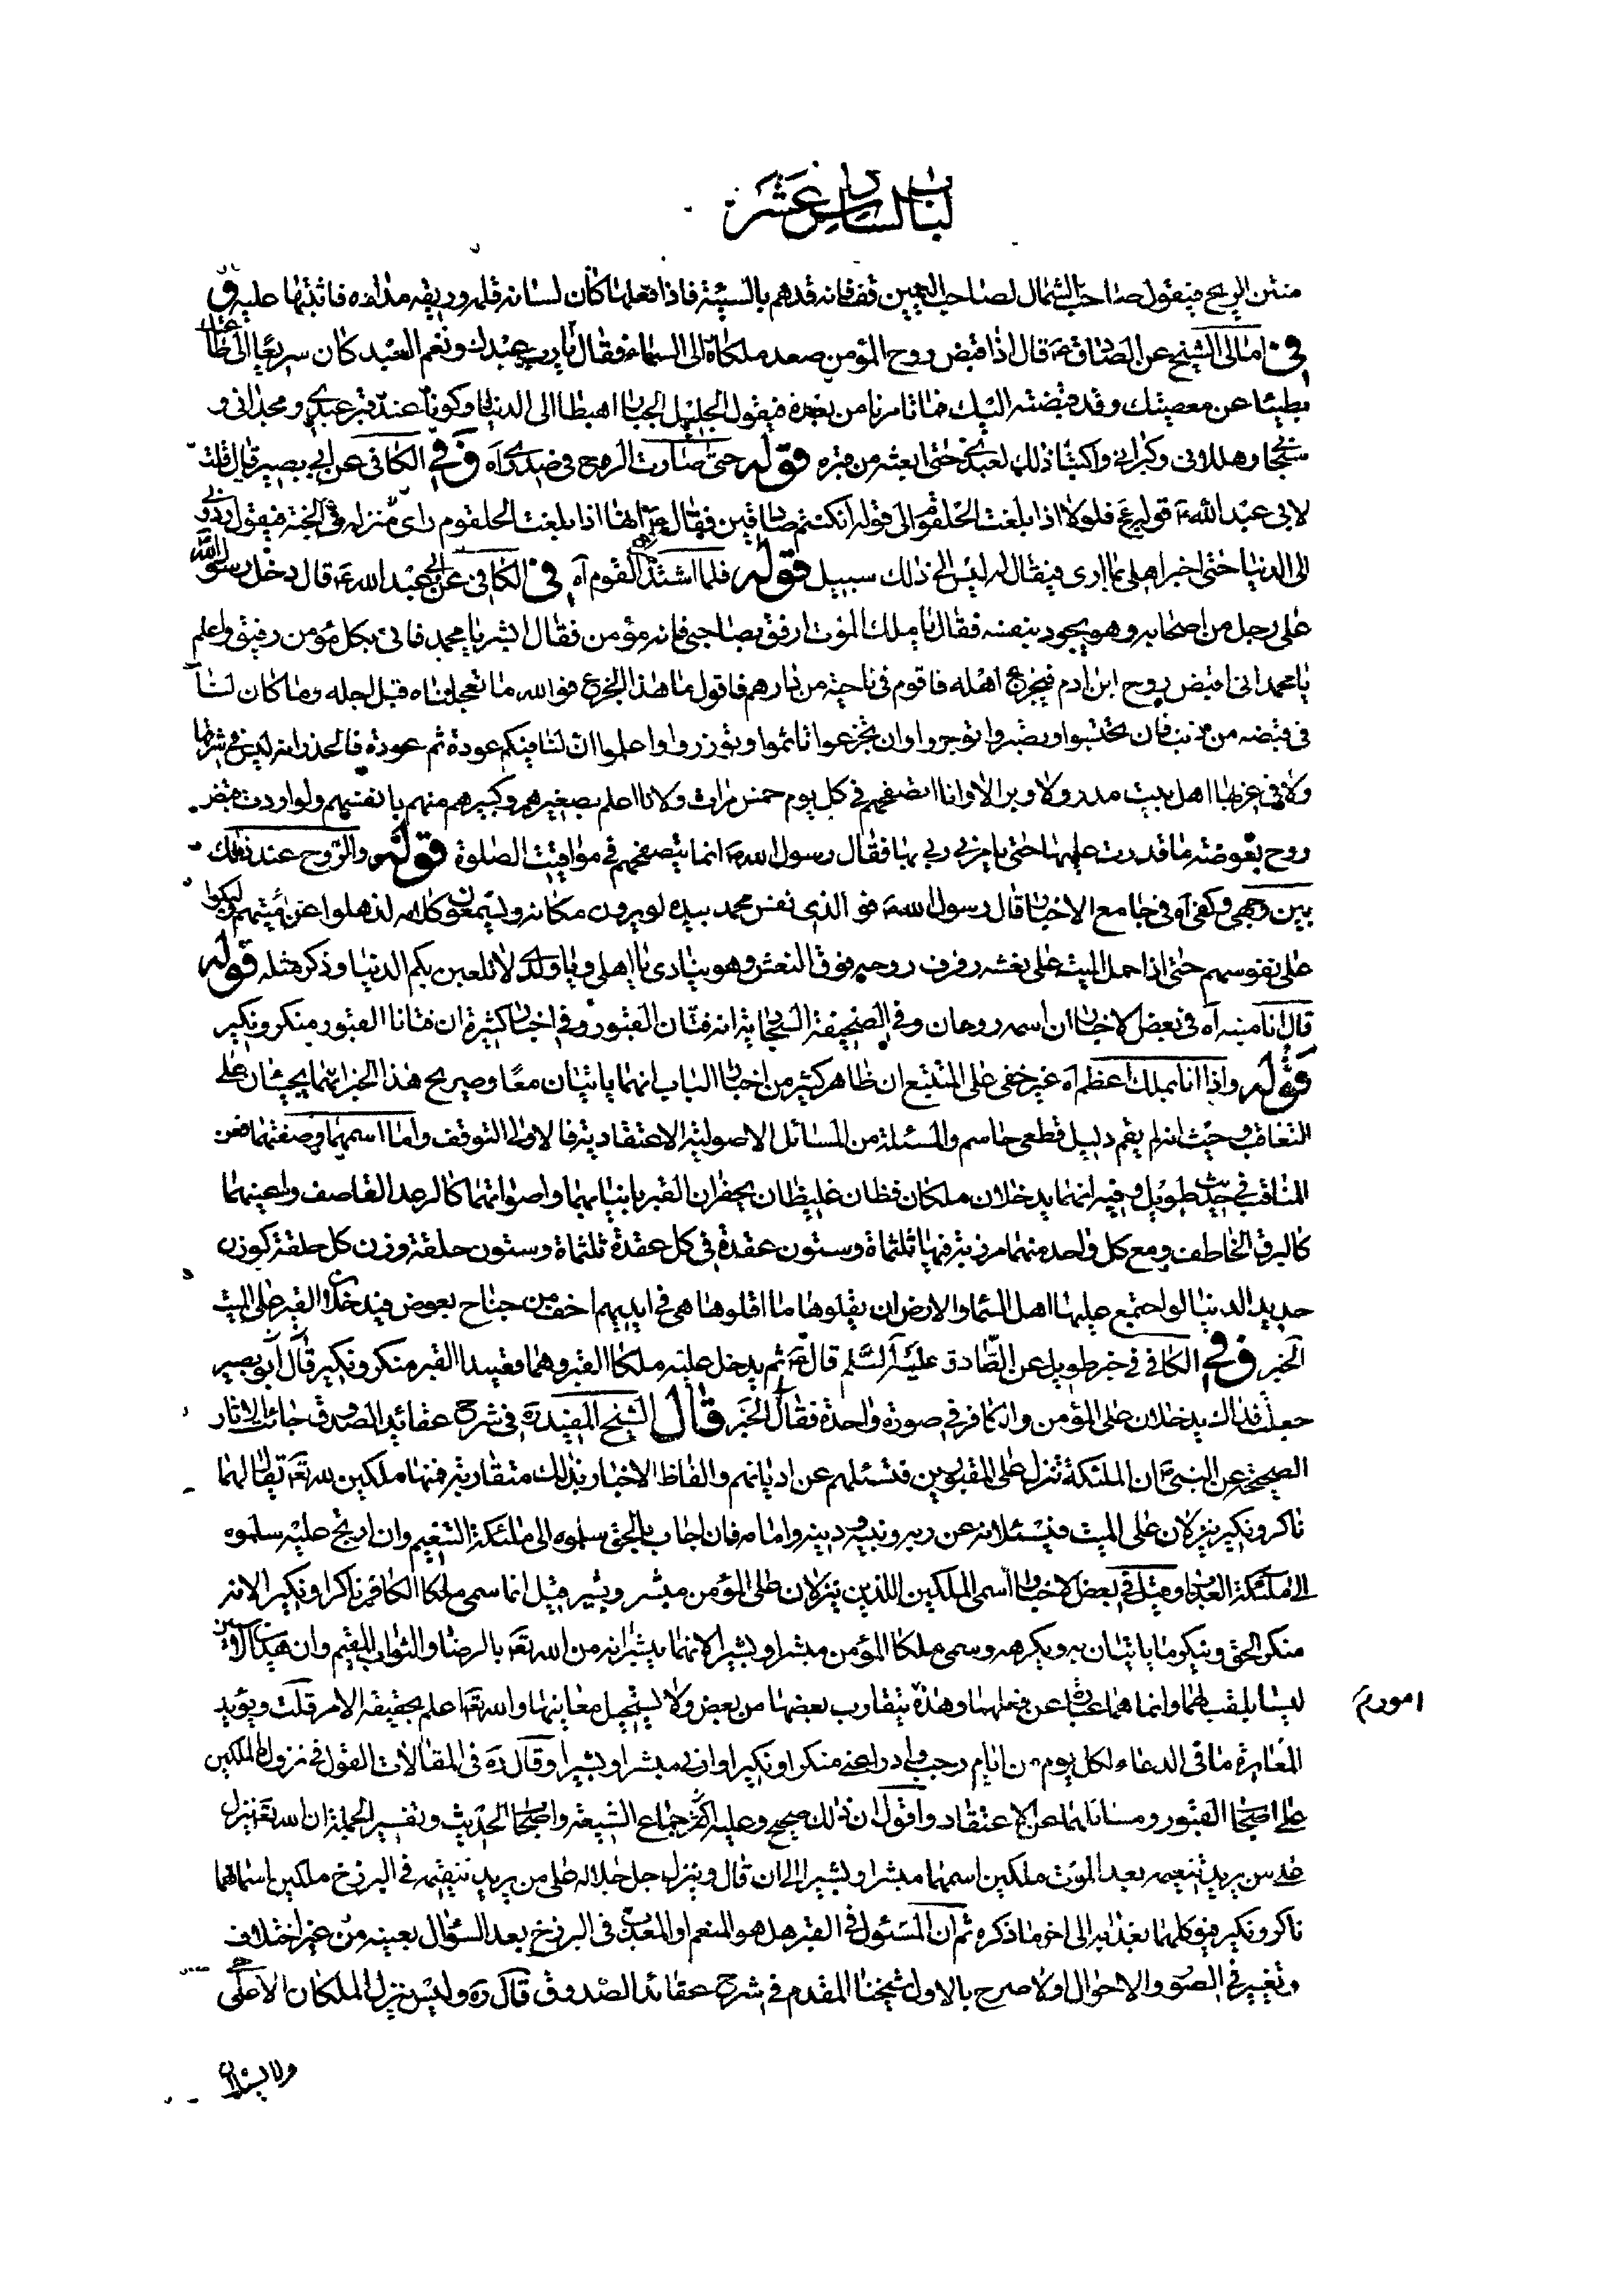 الباب السادس عشر
منتن الريح فيقول صاحب الشمال لصاحب اليمين قف فانه قد هم بالسيئة فاذا فعلها كان لسانه قلمه وريقه مداده فاثبتها عليه و
في امالى الشيخ عن الصادق ع قال اذا قبض روح المؤمن صعد ملكاه الى السماء فقالا يا رب عبدك ونعم العبد كان سريعا الى طاعتك
بطيئا عن معصيتك وقد قبضته اليك فما تامرنا من بعده فيقول الجليل الجبار اهبطا الى الدنيا وكونا عند قبر عبدي ومجداني و
سبحا وهللانى وكبرانى واكتبا ذلك لعبدي حتى ابعثه من قبره قوله حتى صارت الروح فى صدرى اه وفي الكافى عن ابي بصير قال قلت
لابى عبد الله ع قوله عج فلولا اذا بلغت الحلقوم الى قوله ان كنتم صادقين فقال ع انها اذا بلغت الحلقوم راى منزله فى الجنة فيقول ردونى
الى الدنيا حتى اخبر اهلى بما ارى فيقال له ليس الى ذلك سبيل قوله فلما اشتد القوم آه في الكافى عن ابى عبد الله ع قال دخل رسول الله
على رجل من اصحابه وهو يجود بنفسه فقال يا ملك الموت ارفق بصاحبي فانه مؤمن فقال ابشر يا محمد فانى بكل مؤمن رفيق واعلم
يا محمد انى اقبض روح ابن ادم فيجزع اهله فاقوم فى ناحية من دارهم فاقول ما هذا الجزع فو الله ما تعجلناه قبل اجله وما كان لنا
فى قبضه من ذنب فان تحتسبوا وتصبروا تؤجروا وان تجزعوا تاثموا وتوزروا واعلموا ان لنا فيكم عودة ثم عودة فالحذر انه ليس فى شرقها
ولا في غربها اهل بيت مدر ولا وبر الا وانا اتصفحهم فى كل يوم خمس مرات ولانا اعلم بصغيرهم وكبيرهم منهم بانفسهم ولو اردت قبض
روح بعوضة ما قدرت عليها حتى يامرنى ربي بها فقال رسول الله ص انما يتصفحهم فى مواقيت الصلوة قوله والروح عند ذلك
بين وجهي وكفنى آه فى جامع الاخبار قال رسول الله ص فو الذى نفس محمد بيده لو يرون مكانه ويسمعون كلامه لذهلوا عن ميتهم وليبكوا
على نفوسهم حتى اذا حمل الميت على نعشه رفرف روحه فوق النعش وهو ينادى يا اهلى ويا ولدى لا تلعبن بكم الدنيا وذكر مثله قوله
قال انا منبه آه فى بعض الاخبار ان اسمه رومان وفي الصحيفة السجادية انه فتان القبور وفي اخبار كثيرة ان فتانا القبور منكر ونكير
قوله واذا انا بملك اعظم آه غير خفى على المتتبع ان ظاهر كثير من اخبار الباب انهما ياتيان معا وصريح هذا الخبر انهما يجيئان على
التعاقب وحيث انه لم يقم دليل قطعى حاسم والمسئلة من المسائل الاصولية الاعتقادية فالاولى التوقف واما اسمهما وصفتهما فعن
المناقب في حديث طويل وفيه انهما يدخلان ملكان فظان غليظان يحفران القبر بانيابهما واصواتهما كالرعد القاصف واعينهما
كالبرق الخاطف ومع كل واحد منهما مرزبة فيها ثلثمأة وستون عقدة في كل عقدة ثلثمأة وستون حلقة وزن كل حلقة كوزن
حديد الدنيا لو اجتمع عليها اهل السماء والارض ان يقلوها ما اقلوها هى فى ايديهم اخف من جناح بعوض فيدخلان القبر على الميت
الخبر وفي الكافى فى خبر طويل عن الصادق عليه السلم قال ع ثم يدخل عليه ملكا القبر وهما قعيدا القبر منكر ونكير قال ابو بصير
جعلت فداك يدخلان على المؤمن والكافر فى صورة واحدة فقال لا الخبر قال الشيخ المفيد ره فى شرح عقائد الصدوق جائت الاثار
الصحيحة عن النبى ص ان الملئكة تنزل على المقبورين فتسئلهم عن اديانهم والفاظ الاخبار بذلك متقاربة فمنها ملكين لله تع يقال لهما
ناكر ونكير ينزلان على الميت فيسئلانه عن ربه ونبيه ودينه وامامه فان اجاب بالحق سلموه الى ملئكة النعيم وان ارتج عليه سلموه
الى ملئكة العذاب وقيل في بعض الاخبار اسمى الملكين اللذين ينزلان على المؤمن مبشر وبشير قيل انما سمى ملكا الكافر ناكرا ونكيرا لانه
منكر الحق وينكر ما ياتيان به ويكرهه وسمى ملكا المؤمن مبشرا وبشيرا لانهما يبشرانه من الله تع بالرضا والثواب المقيم وان هذين الاسمين
ليسا بلقب لهما وانما هما عبارة عن فعلهما وهذه يتقارب بعضها من بعض ولا يستحيل معانيها والله تع اعلم بحقيقة الامر قلت ويؤيد
امور م
المغايرة ما فى الدعاء لكل يوم من ايام رجب وادرا عنى منكرا ونكيرا وارنى مبشرا وبشيرا وقال ره فى المقالات القول فى نزول الملكين
على اصحاب القبور ومسائلتهما عن الاعتقاد واقول ان ذلك صحيح وعليه اجماع الشيعة واصحاب الحديث وتفسير الجملة ان الله تع ينزل
على من يريد تنعيمه بعد الموت ملكين اسمهما مبشرا وبشيرا الى ان قال وينزل جل جلاله على من يريد تنقيمه فى البرزخ ملكين اسماهما
ناكر ونكير فيوكلهما بعذابه الى اخر ما ذكره ثم ان المسئول فى القبر هل هو المنعم او المعذب فى البرزخ بعد السؤال بعينه من غير اختلاف
وتغيير فى الصور والاحوال اولا صرح بالاول شيخنا المقدم فى شرح عقائد الصدوق قال ره وليس ينزل الملكان الا على
ولا يسئلان